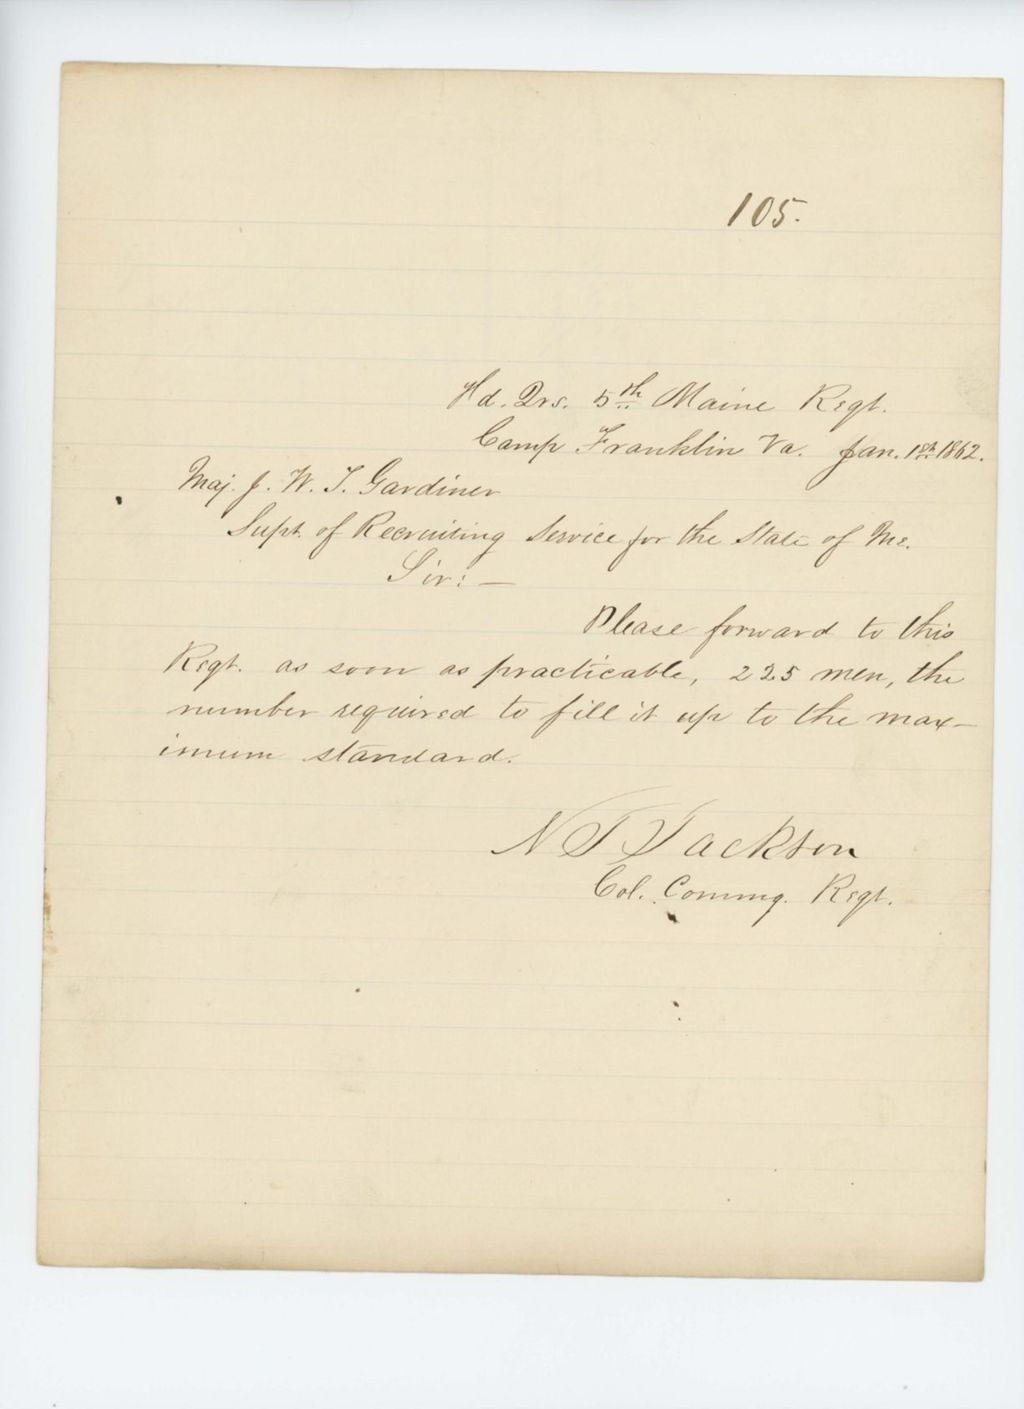 105.
Hd. Qrs. 5th Maine Regt.
Camp Franklin Va. Jan. 1st 1862.
Maj. J. W. T. Gardiner
Supt. of Recruiting Service for the State of Me.
Sir: —
Please forward to this
Regt. as soon as practicable, 225 men, the
number required to fill it up to the max-
imum standard.
N J Jackson
Col. Commg. Regt.